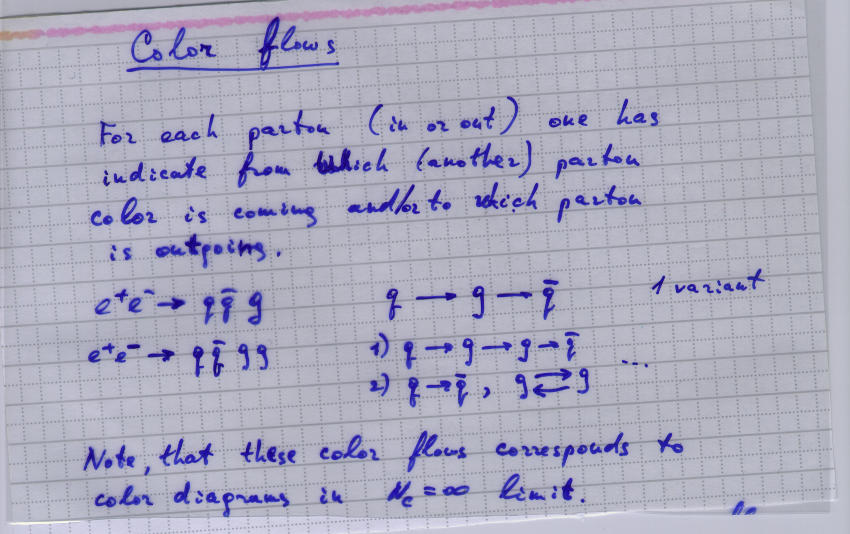 Color flows
For each parton (in or out) one has
indicate from which (another) parton
color is coming and/or to which parton
is outgoing.
e⁺e⁻ → q q̄ g q → g → q̄ 1 variant
e⁺e⁻ → q q̄ g g 1) q → g → g → q̄ ...
2) q → q̄ , g ⇄ g
Note, that these color flows corresponds to
color diagrams in N_c = ∞ limit.